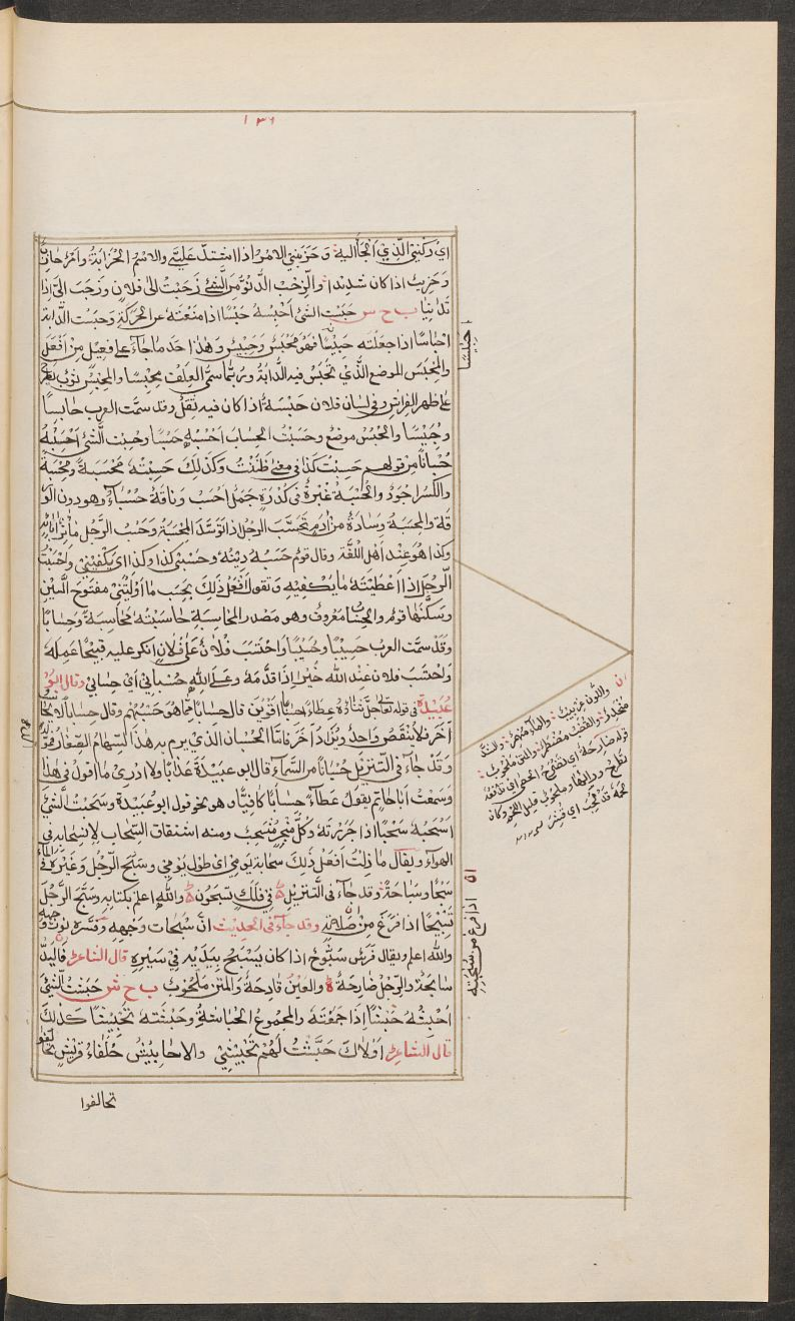 ١٣٦
اي ركني الذي الجأ اليه وحزبني الامر اذا اشتد علي والاسم الحزابة وامر حازب
وحزيب اذا كان شديدا والزحب الدنو من الشئ زحبت الى فلان وزحب الي اذا
تدانيا ب ح س حبست الشئ احبسه حبسا اذا منعته عن الحركة وحبست الدابة
احباسا اذا جعلته حبيسا فهو محبس وحبيس وهذا احد ما جاء على فعيل من افعل
والمحبس الموضع الذي تحبس فيه الدابة وربما سمي العلف محبسا والمحبس ثوب يطرح
على ظهر الفراش وفي لسان فلان حبسة اذا كان فيه ثقل وقد سمت العرب حابسا
وحبيسا والحبس موضع وحسبت الحساب احسبه حسبا وحسبت الشئ احسبه
حسبانا من قولهم حسبت كذا في معنى ظننت وكذلك حسبته محسبة ومحسبة
والكسر اجود والحسبة غبرة في كدرة جمل احسب وناقة حسباء وهو دون الو
قة والمحسبة وسادة من ادم تحسب الرجل اذا توسد المحسبة وحسب الرجل مآثر آبائه
وكذا هو عند اهل اللغة وقال قوم حسبه دينه وحسبي كذا وكذا اي يكفيني واحسبت
الرجل اذا اعطيته ما يكفيه وتقول افعل ذلك بحسب ما اوليتني مفتوح السين
وسكنها قوم والحساب معروف وهو مصدر المحاسبة حاسبته محاسبة وحسابا
وقد سمت العرب حسيبا وحسيبا واحتسب فلان على فلان انكر عليه قبيحا عمله
واحتسب فلان عند الله خيرا اذا قدمه وعلى الله حسباني اي حسابي وقال ابو
عبيدة في قوله تعالى جل ثناؤه عطاء حسابا
آخر لا ينقص واحد ويزداد آخر فاما الحسبان الذي يرمى به هذا السهام الصغار فمولد
وقد جاء في التنزيل حسبانا من السماء قال ابو عبيدة عذابا ولا ادري ما اقول في هذا
وسمعت ابا حاتم يقول عطاء حسابا كافيا وهو نحو قول ابو عبيدة وسحبت الشئ
اسحبه سحبا اذا جررته وكل منجر منسحب ومنه اشتقاق السحاب لانسحابه في
الهواء ويقال ما زلت افعل ذلك سحابة يومي اي طول يومي وسبح الرجل وغيره في الماء
سبحا وسباحة وقد جاء في التنزيل في فلك يسبحون والله اعلم بكتابه وسبح الرجل
تسبيحا اذا فرغ من صلاته وقد جاء في الحديث ان سبحات وجهه وفسره نور وجهه
والله اعلم ويقال فرس سبوح اذا كان يسبح بيديه في سيره قال الشاعر فاليد
سابحة والرجل ضارحة والعين قادحة والمتن ملحوب ب ح ش حبشت الشئ
احبشه حبشا اذا جمعته والمجموع الحباشة وحبشته تحبيشا كذلك
قال الشاعر اولاك حبشت لهم تحبيشي والاحابيش حلفاء قريش تحالفوا
تحالفوا
حبيسا
ان واللون غربيب والماء منهمر والشد
منحدر والقصب مضطمر والمتن ملحوب
قوله ضارحة اي تضرح الحصى اي تدفعه
ان اذا فرغ من سبحته